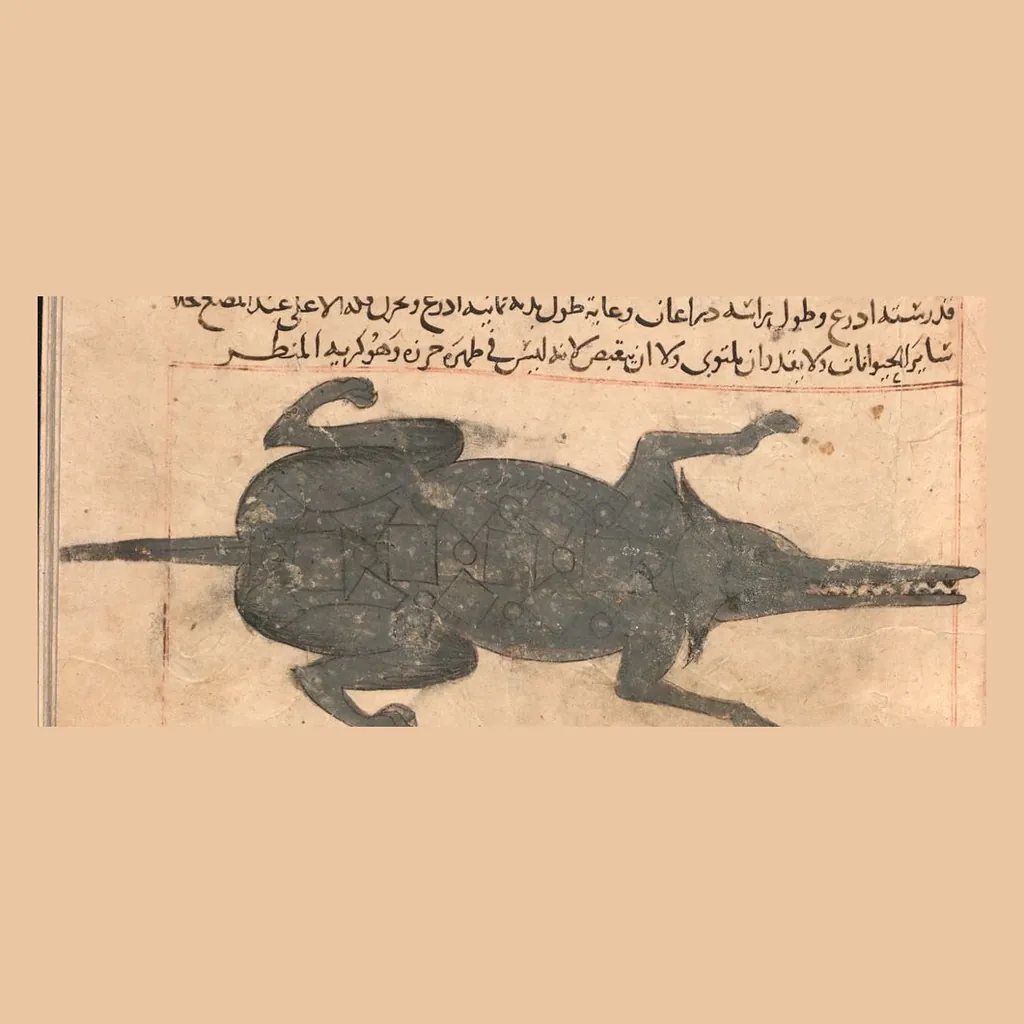 قدر ستة اذرع وطول راسه ذراعان وغاية طول بدنه ثمانية اذرع ويحرك فكه الاعلى عند المضغ خلاف
ساير الحيوانات ولا يقدر ان يلتوى ولا ان ينقبض لانه ليس في ظهره خرزه وهو كريه المنظر